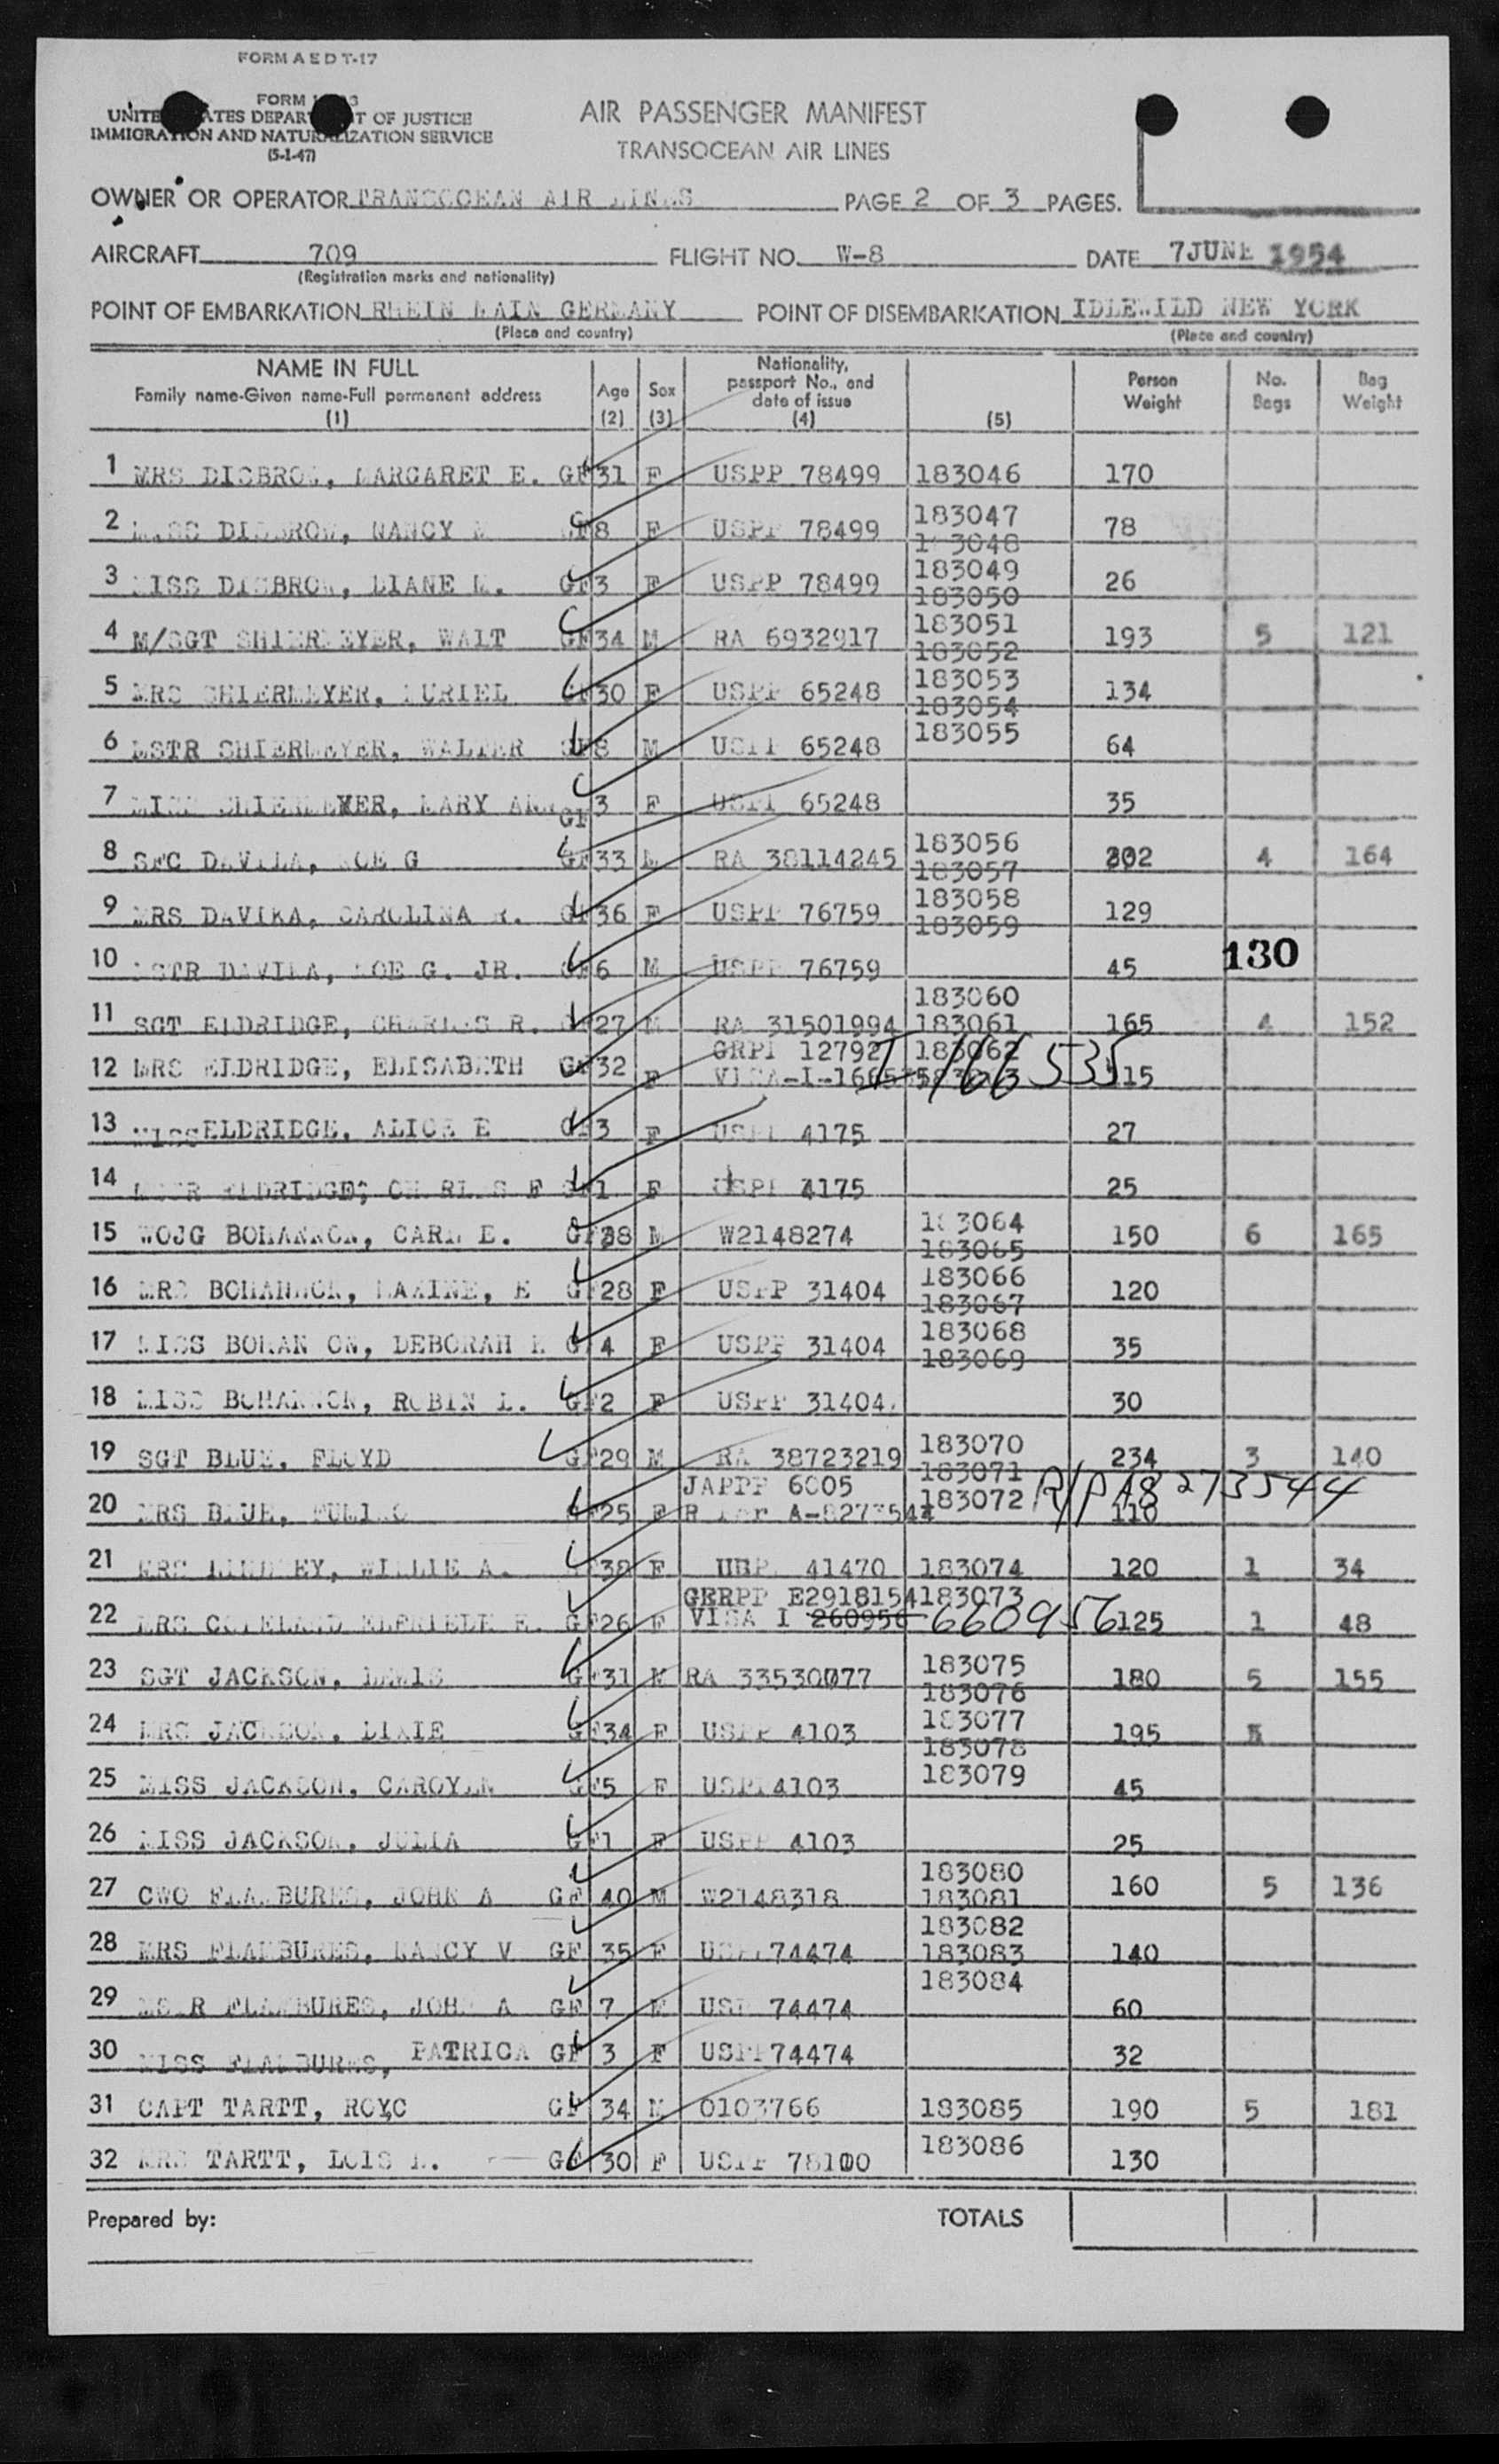 FORM A E D T-17
FORM
UNITE ATES DEPAR T OF JUSTICE
IMMIGRATION AND NATURALIZATION SERVICE
(5-1-47)
AIR PASSENGER MANIFEST
TRANSOCEAN AIR LINES
OWNER OR OPERATOR TRANSOCEAN AIR LINES PAGE 2 OF 3 PAGES.
AIRCRAFT 709 FLIGHT NO. W-8 DATE 7JUNE 1954
(Registration marks and nationality)
POINT OF EMBARKATION RHEIN MAIN GERMANY POINT OF DISEMBARKATION IDLEWILD NEW YORK
(Place and country) (Place and country)
NAME IN FULL
Family name-Given name-Full permanent address
(1)
Age
(2)
Sex
(3)
Nationality,
passport No., and
date of issue
(4)
(5)
Person
Weight
No.
Bags
Bag
Weight
1 MRS DISBROW, MARGARET E. GF 31 F USPP 78499 183046 170
2 MISS DISBROW, NANCY F 8 F USPP 78499 183047 183048 78
3 MISS DISBROW, DIANE M. GF 3 F USPP 78499 183049 183050 26
4 M/SGT SHIERMEYER, WALT GF 34 M RA 6932917 183051 183052 193 5 121
5 MRS SHIERMEYER, MURIEL GF 30 F USPP 65248 183053 183054 134
6 MSTR SHIERMEYER, WALTER GF 8 M USPP 65248 183055 64
7 MISS SHIERMEYER, MARY ANN GF 3 F USPP 65248 35
8 SFC DAVILA, NOE G GF 33 M RA 38114245 183056 183057 202 4 164
9 MRS DAVIKA, CAROLINA R. GF 36 F USPP 76759 183058 183059 129
10 MSTR DAVILA, NOE G. JR. GF 6 M USPP 76759 45
130
11 SGT ELDRIDGE, CHARLES R. GF 27 M RA 31501994 183060 183061 165 4 152
12 MRS ELDRIDGE, ELISABETH GF 32 F GRPP 12792 183062
VISA-I-166535 I-166535 115
13 MISS ELDRIDGE, ALICE E GF 3 F USPP 4175 27
14 MSTR ELDRIDGE, CHARLES F GF 1 F USPP 4175 25
15 WOJG BOHANNON, CARL E. GF 38 M W2148274 183064 183065 150 6 165
16 MRS BOHANNON, MAXINE, E GF 28 F USPP 31404 183066 183067 120
17 MISS BOHAN ON, DEBORAH GF 4 F USPP 31404 183068 183069 35
18 MISS BOHANNON, ROBIN L. GF 2 F USPP 31404 30
19 SGT BLUE, FLOYD GF 29 M RA 38723219 183070 183071 234 3 140
20 MRS BLUE, GF 25 F JAPPP 6005 183072 R/P A8273544
R Per A-8273544 110
21 MRS WILLIE A. GF 38 F USPP 41470 183074 120 1 34
22 MRS COPELAND ELFRIEDE E. GF 26 F GERPP E2918154 183073
VISA I 260956 660956 125 1 48
23 SGT JACKSON, LEWIS GF 31 M RA 33530077 183075 183076 180 5 155
24 MRS JACKSON, DIXIE GF 34 F USPP 4103 183077 183078 195
25 MISS JACKSON, CAROYLN GF 5 F USPP 4103 183079 45
26 MISS JACKSON, JULIA GF 1 F USPP 4103 25
27 CWO FLAMBURES, JOHN A GF 40 M W2148318 183080 183081 160 5 136
28 MRS FLAMBURES, NANCY V GF 35 F USPP 74474 183082 183083 140
29 MSTR FLAMBURES, JOHN A GF 7 M USP 74474 183084 60
30 MISS FLAMBURES, PATRICA GF 3 F USPP 74474 32
31 CAPT TARTT, ROY,C GF 34 M 0103766 183085 190 5 181
32 MRS TARTT, LOIS M. GF 30 F USPP 78100 183086 130
Prepared by: TOTALS